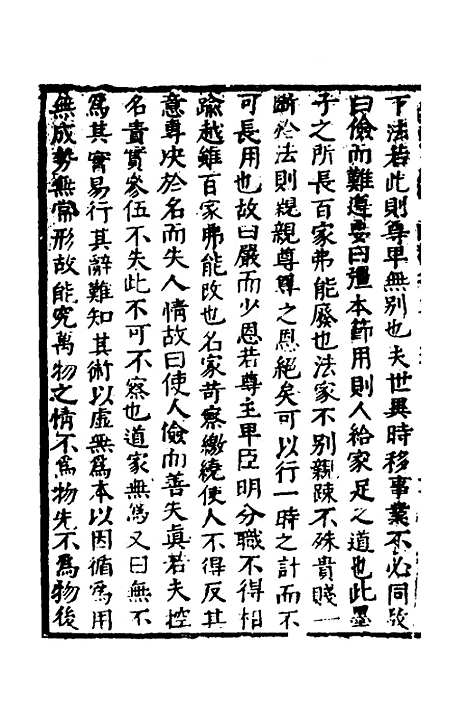 下法若此則尊卑無別也夫世異時移事業不必同故
曰儉而難遵要曰彊本節用則人給家足之道也此墨
子之所長百家弗能廢也法家不別親踈不殊貴賤一
斷於法則親親尊尊之恩絕矣可以行一時之計而不
可長用也故曰嚴而少恩若尊主卑臣明分職不得相
踰越雖百家弗能改也名家苛察繳繞使人不得反其
意專決於名而失人情故曰使人儉而善失真若夫控
名責實參伍不失此不可不察也道家無爲又曰無不
爲其實易行其辭難知其術以虛無爲本以因循爲用
無成勢無常形故能究萬物之情不爲物先不爲物後